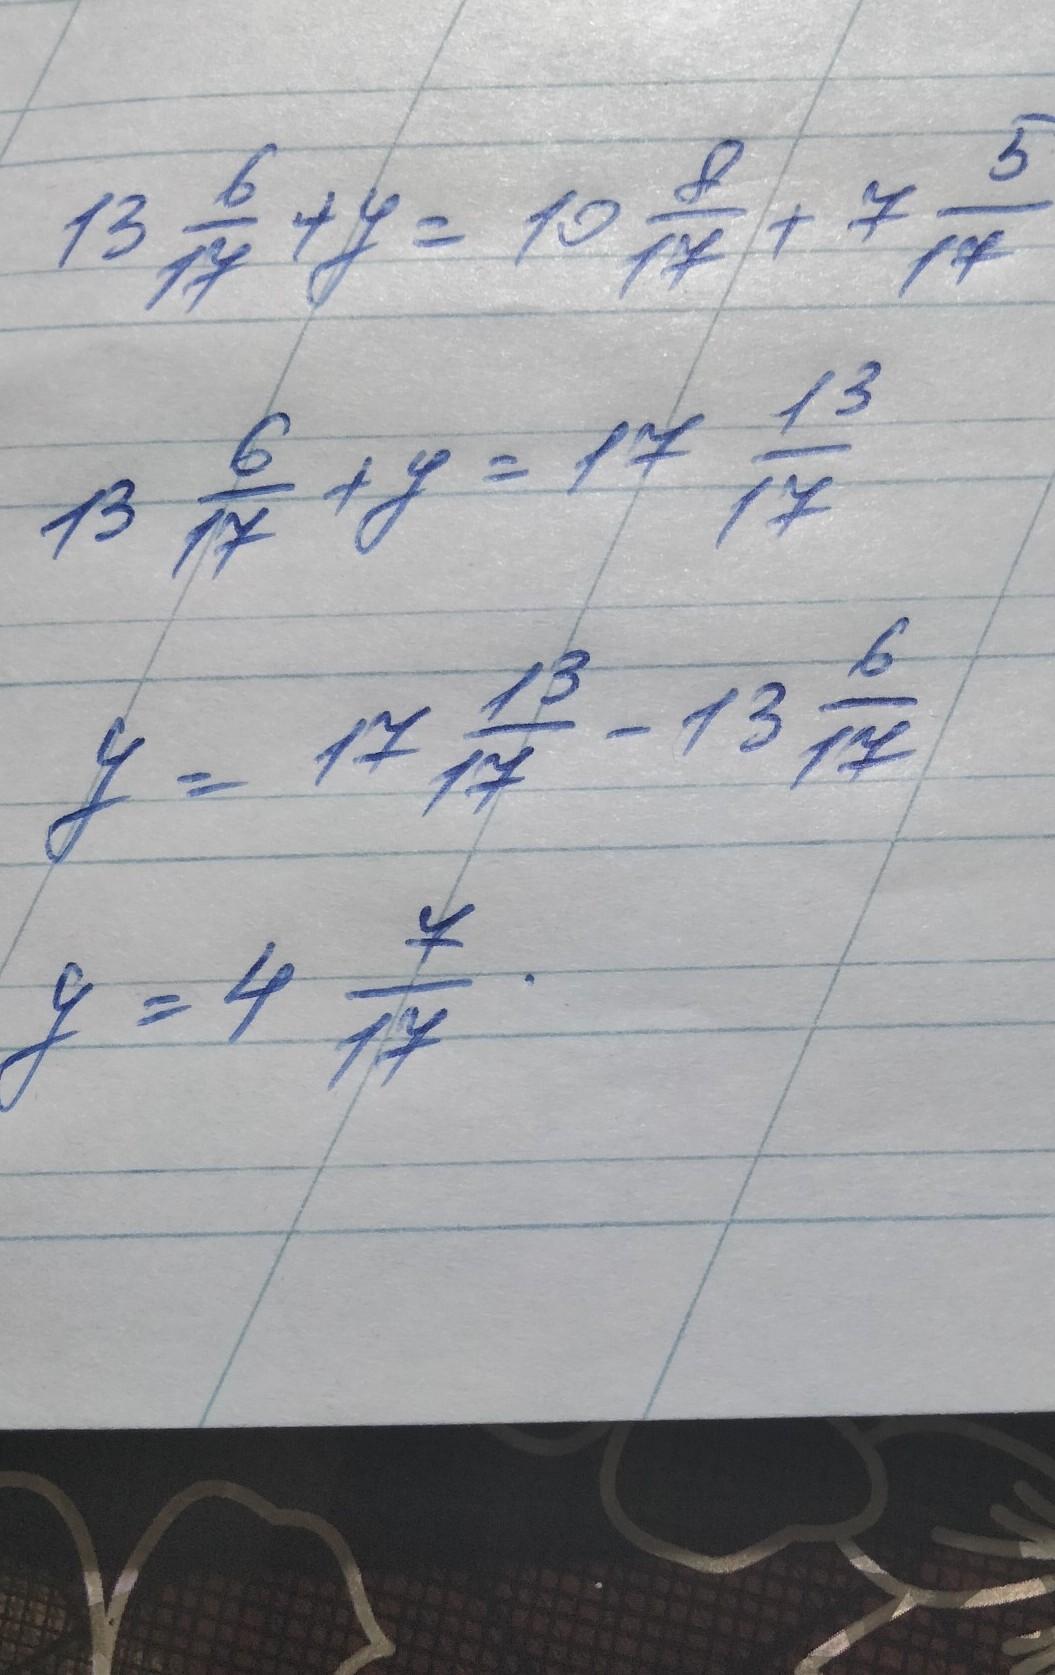 13 6/17 + y = 10 8/17 + 7 5/17
13 6/17 + y = 17 13/17
y = 17 13/17 - 13 6/17
y = 4 7/17.